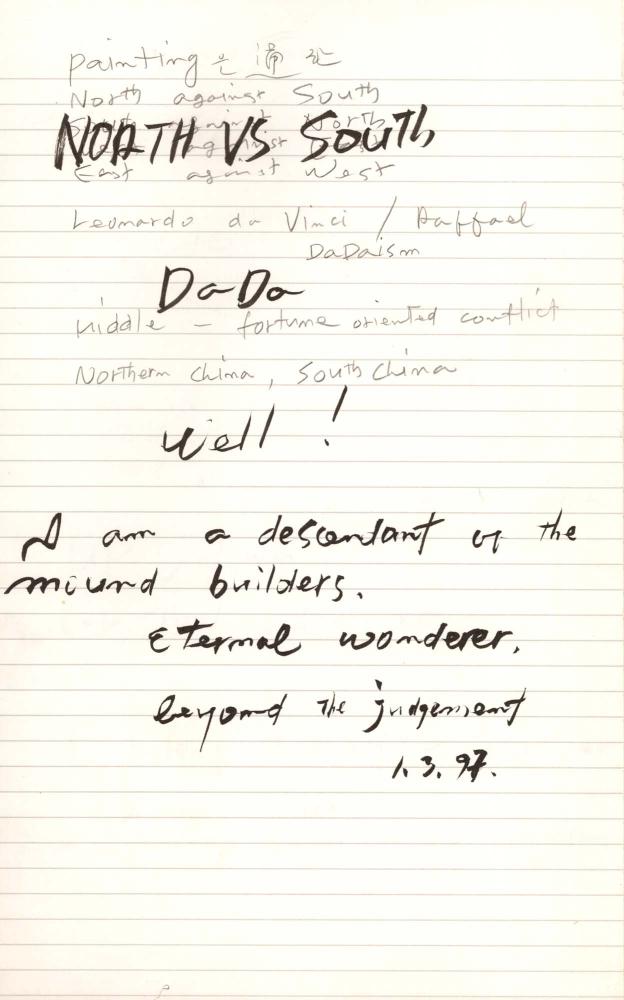 painting 은
North against South
South against North
NORTH VS South
East against West
Leonardo da Vinci / Raffael
DaDaism
DaDa
middle – fortune oriented conflict
Northern China, South China
Well !
I am a descendant of the
mound builders.
Eternal wonderer,
beyond the judgement
1. 3. 97.